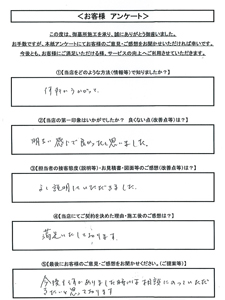 ＜お客様 アンケート＞
この度は、御墓所施工を承り、誠にありがとう御座いました。
お手数ですが、本紙アンケートにてお客様のご意見・ご感想をお聞かせいただければ幸いです。
今後とも、お客様にご満足いただける様、サービスの向上へご利用させていただきます。
①【当店をどのような方法（情報等）で知りましたか？】
②【当店の第一印象はいかがでしたか？ 良くない点（改善点等）は？】
明るい感じで良かったと思いました。
③【担当者の接客態度（説明等）・お見積書・図面等のご感想（改善点等）は？】
よく説明していただきました。
④【当店にてご契約を決めた理由・施工後のご感想は？】
満足いたしております。
⑤【最後にお客様のご意見・ご感想をお聞かせください。（ご提案等）】
今後とも何かありました時は相談にのっていただ
きたいと思っております